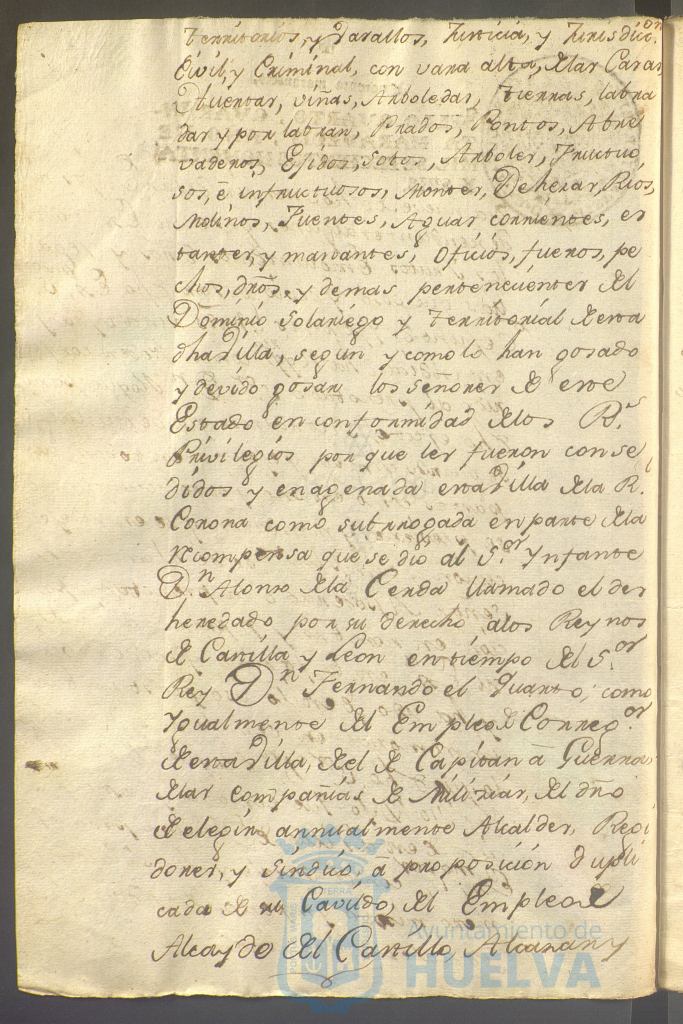 territorios, y Vasallos, Justicia, y Jurisdicc.on
Civil, y Criminal, con vara alta, de las Casas
Huertas, viñas, Arboledas, tierras, labra
das y por labrar, Prados, Pastos, Abre
vaderos, Egidos, Sotos, Arboles, Fructuo
sos, é infructuosos, Montes, Dehesas, Rios,
Molinos, Fuentes, Aguas corrientes, es
tantes, y manantes, Oficios, fueros, pe
chos, dros. y demas pertenecientes del
Dominio Solariego y territorial de esta
dha Villa, segun y como lo han gosado
y devido gosar los señores de este
Estado en conformidad de los R.s
Privilegios por que les fueron conse
didos y enagenada esta Villa de la R.l
Corona como subrrogada en parte de la
recompensa que se dio al S.or Ynfante
D.n Alonso de la Cerda llamado el des
heredado por su derecho a los Reynos
de Castilla y Leon en tiempo del S.or
Rey D.n Fernando el Quarto; como
Ygualmente del Empleo de Correg.or
de esta Villa, del de Capitan á Guerra
de las compañias de Milizias, del dro
de elegir annualmente Alcaldes, Regi
dores, y Sindico, á proposicion dupli
cada de su Cavildo, del Empleo de
Alcayde del Castillo, Alcaran y
Ayuntamiento de
HUELVA